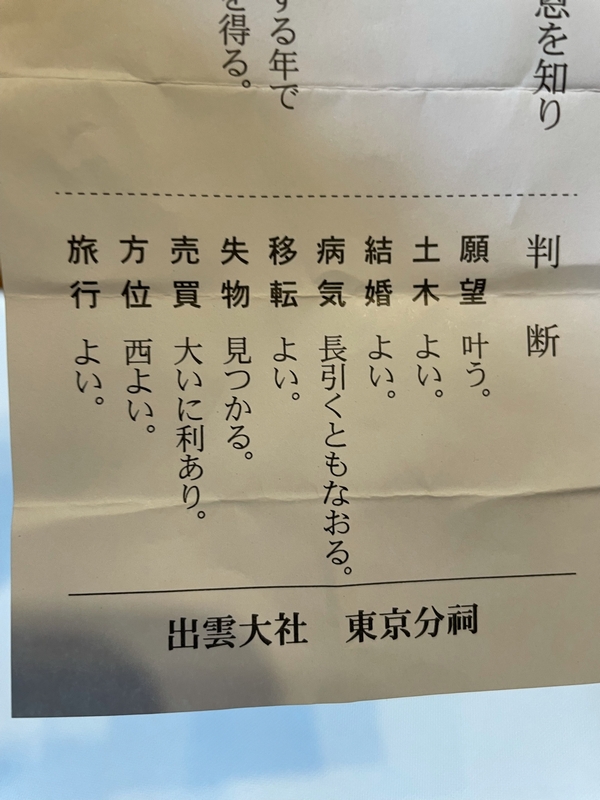 恩を知り
する年で
を得る。
判断
願望 叶う。
土木 よい。
結婚 よい。
病気 長引くともなおる。
移転 よい。
失物 見つかる。
売買 大いに利あり。
方位 西よい。
旅行 よい。
出雲大社 東京分祠